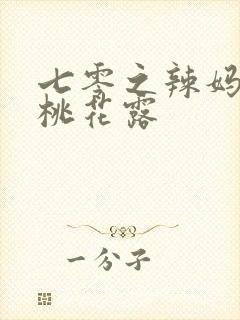 七零之辣妈
桃花露
一分子